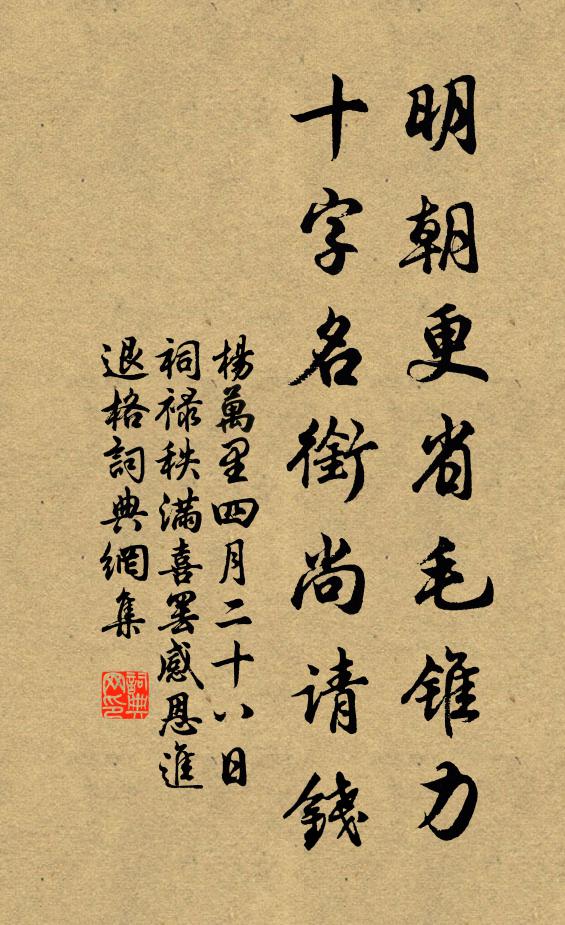 明朝更省毛錐力
十字名銜尚请錢
楊萬里四月二十八日
祠禄秩滿喜罢感恩進
退格詞典網集
詞典网印